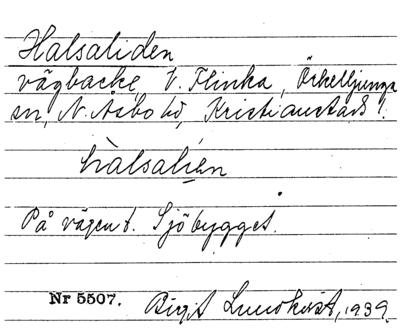 Halsaliden
vägbacke, V. Flinka, Örkelljunga
sn, N. Åsbo hd, Kristianstads l.
hàlsalíen
På vägen t. Sjöbygget.
Nr 5507. Birgit Lundkvist, 1939.